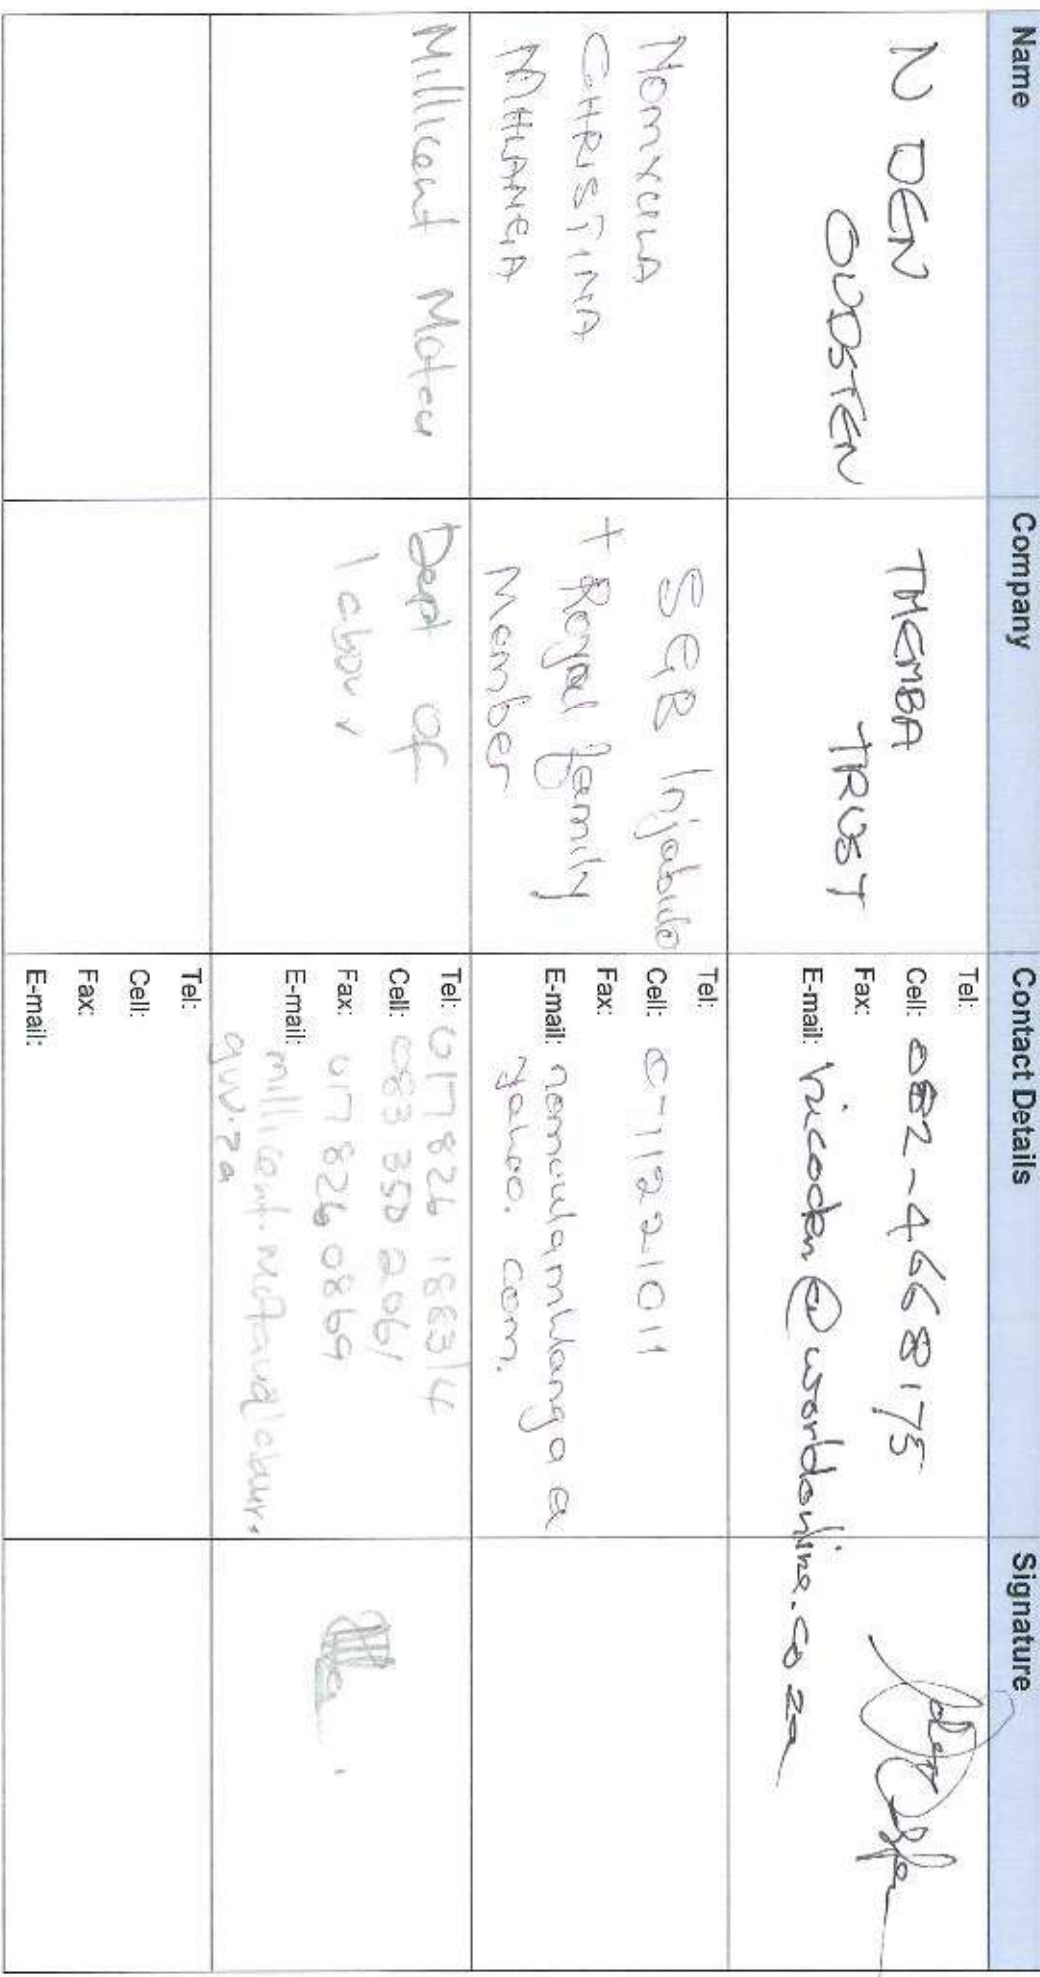 Name Company Contact Details Signature
N DEN
OUDSTEN
THEMBA
TRUST
Tel:
Cell: 082-4668175
Fax:
E-mail: nicoden@worldonline.co za
CHRISTINA
SGB Injabulo
+ Royal family
Member
Tel:
Cell: 0712221011
Fax:
E-mail:
yahoo. com.
Millicent
Dept of
labour
Tel: 017 826 1883/4
Cell: 083 350 2061
Fax: 017 826 0869
E-mail:
gov.za
Tel:
Cell:
Fax:
E-mail: